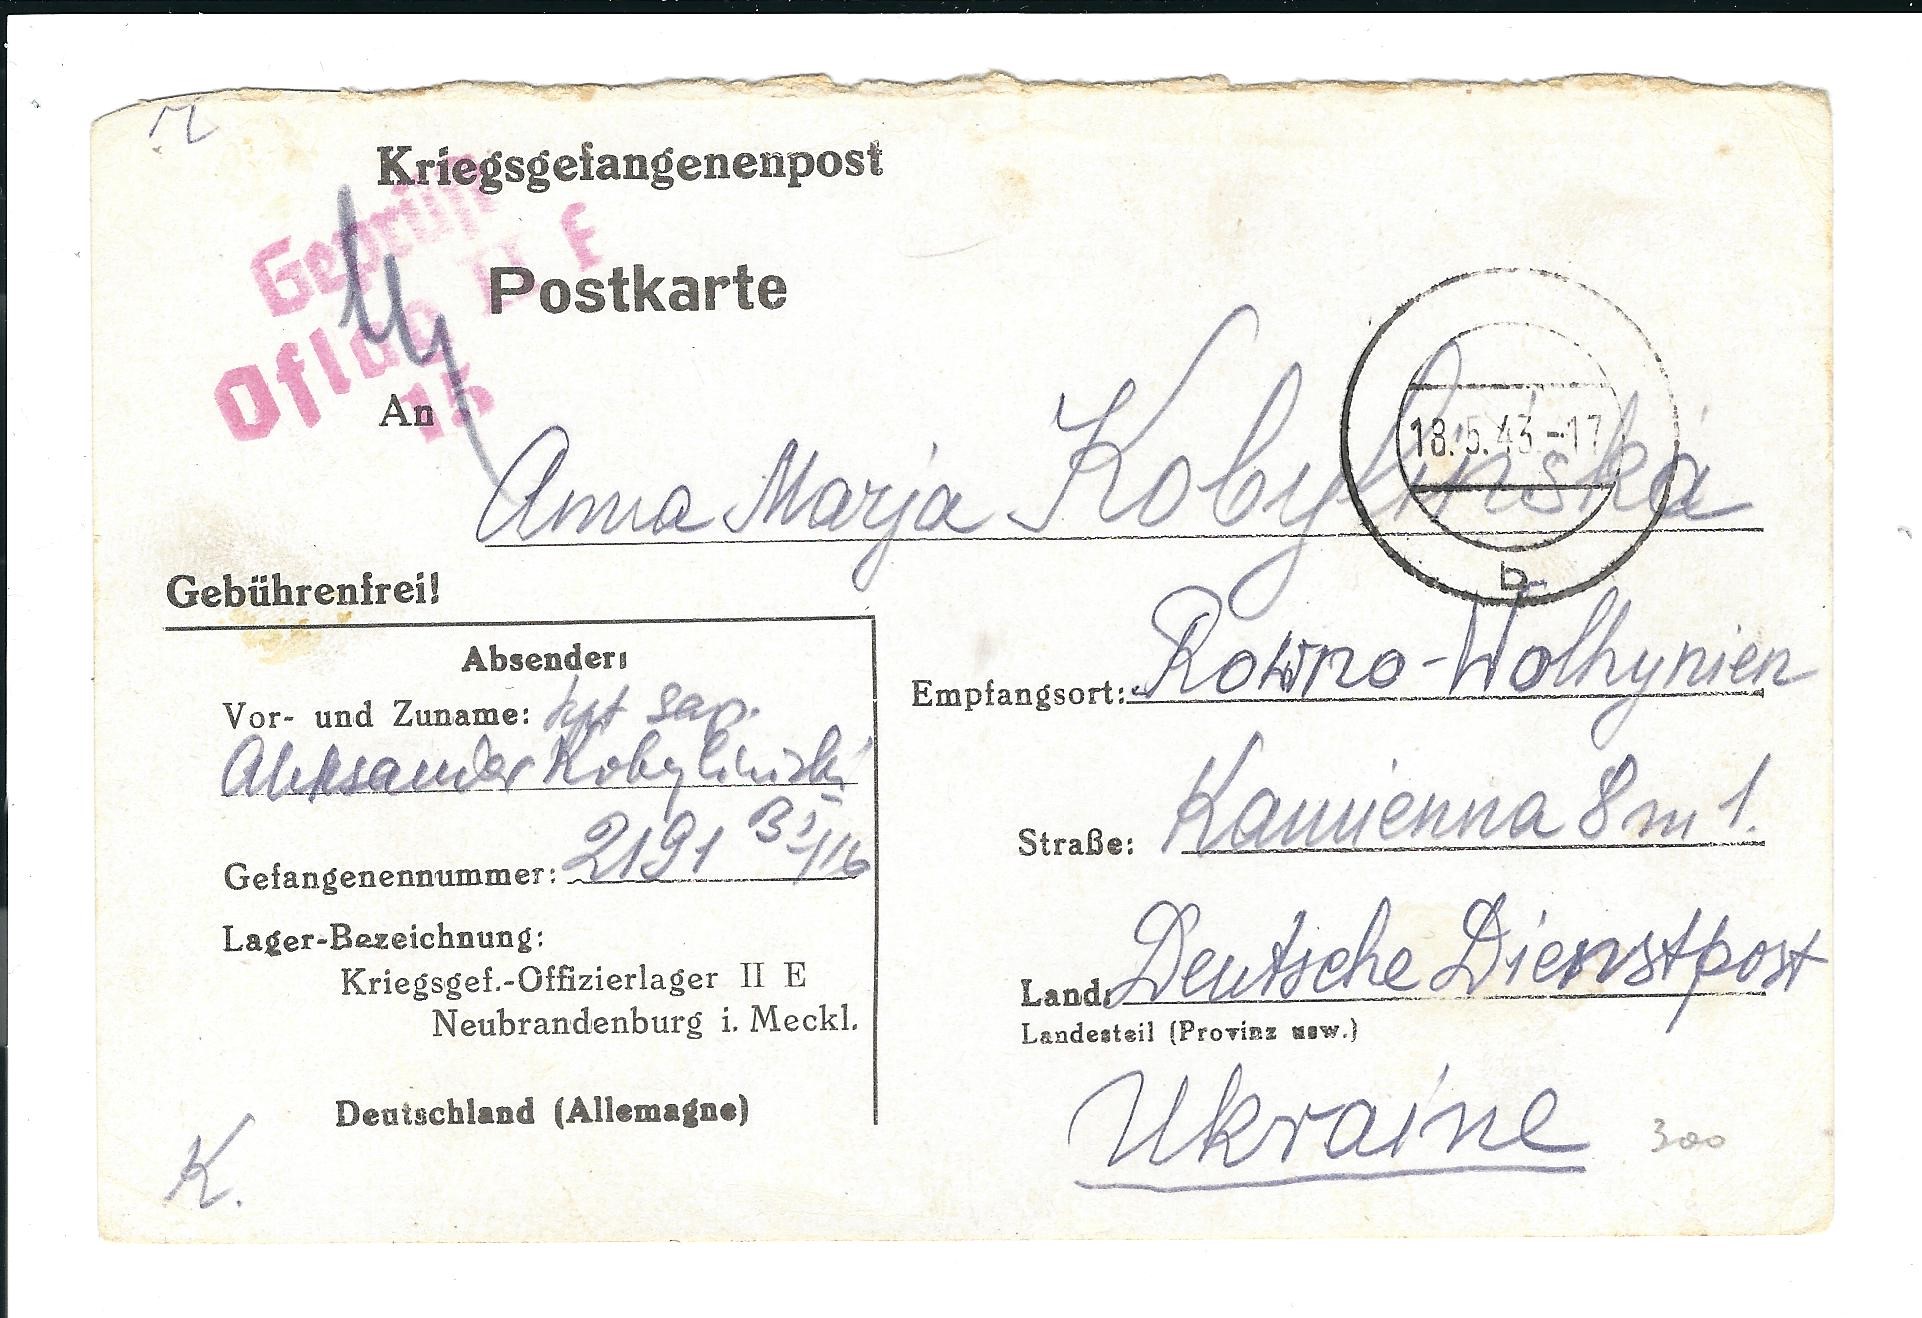 Kriegsgefangenenpost
Geprüft
Oflag II E
15
Postkarte
18.5.43.-17
b
An Anna Marja Kobylińska
Gebührenfrei!
Absender:
Vor- und Zuname: kpt sap.
Aleksander Kobyliński
Gefangenennummer: 2191
Lager-Bezeichnung:
Kriegsgef.-Offizierlager II E
Neubrandenburg i. Meckl.
Deutschland (Allemagne)
K.
Empfangsort: Rowno-Wolhynien
Straße: Kamienna 8 m 1.
Land: Deutsche Dienstpost
Landesteil (Provinz usw.)
Ukraine
300